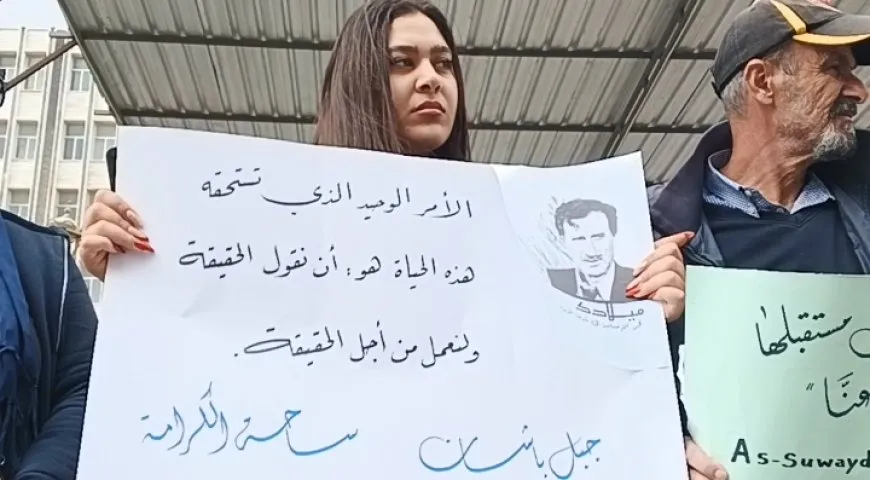 الأمر الوحيد الذي تستحقه
هذه الحياة هو: أن نقول الحقيقة
ولنعمل من أجل الحقيقة.
جبل باشان ساحة الكرامة
ميلادك
مستقبلها
عنّا"
As-Suwayd